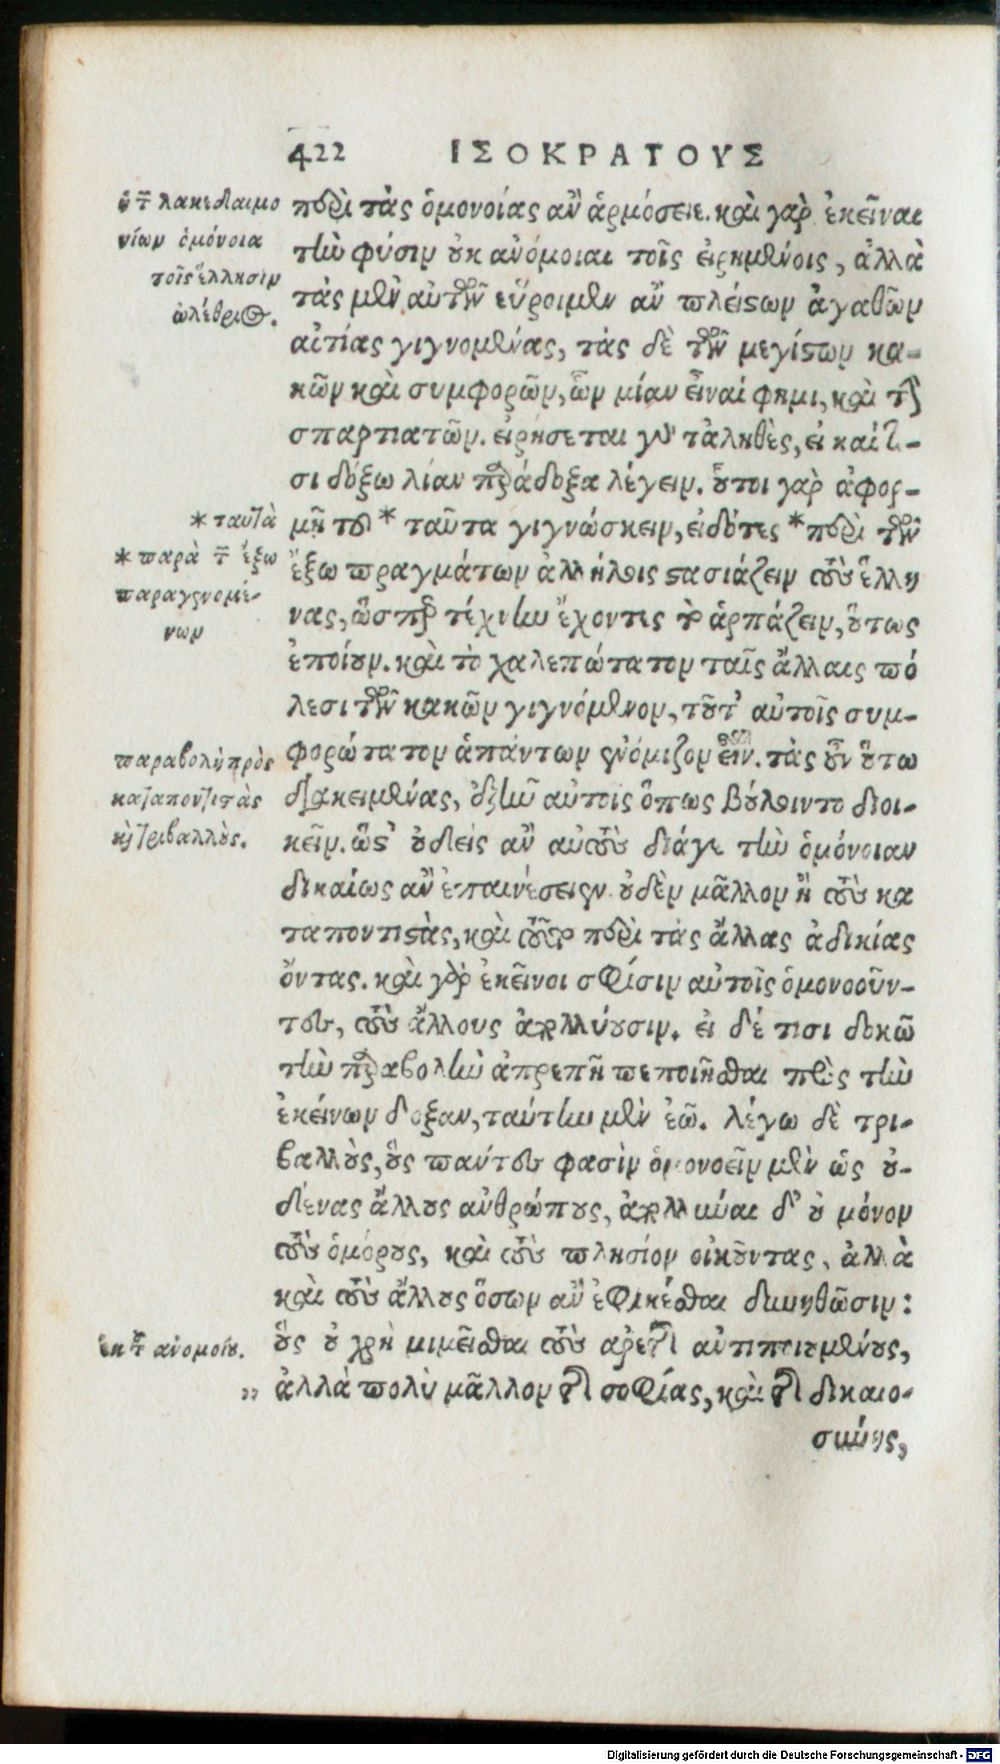 422 ΙΣΟΚΡΑΤΟΥΣ
ἡ τ̃ λακεδαιμο
νίων ὁμόνοια
τοῖς ἕλλησιν
ὠλέθριος.
περὶ τὰς ὁμονοίας ἂν ἁρμόσειε. καὶ γὰρ ἐκεῖναι
τὴν φύσιν οὐκ ἀνόμοιαι τοῖς εἰρημένοις, ἀλλὰ
τὰς μὲν αὐτῶν εὕροιμεν ἂν πλείστων ἀγαθῶν
αἰτίας γιγνομένας, τὰς δὲ τῶν μεγίστων κα-
κῶν καὶ συμφορῶν, ὧν μίαν εἶναί φημι, καὶ τ̃
σπαρτιατῶν. εἰρήσεται γὰρ τἀληθὲς, εἰ καί τι-
σι δόξω λίαν παράδοξα λέγειν. οὗτοι γὰρ ἀφορ-
* ταυτὰ
μῇ τοῦ * ταῦτα γιγνώσκειν, εἰδότες * περὶ τῶν
* παρὰ τ̃ ἔξω
παραγενομέ-
νων
ἔξω πραγμάτων ἀλλήλοις στασιάζειν τοὺς ἕλλη
νας, ὥσπερ τέχνην ἔχοντες τοῦ ἁρπάζειν, οὕτως
ἐποίουν. καὶ τὸ χαλεπώτατον ταῖς ἄλλαις πό
λεσι τῶν κακῶν γιγνόμενον, τοῦτ' αὐτοῖς συμ-
φορώτατον ἁπάντων ἐνόμιζον εἶν. τὰς οὖν οὕτω
παραβολὴ πρὸς
καταποντιστὰς
κὶ τριβαλλούς.
διακειμένας, ἐξῆν αὐτοῖς ὅπως βούλοιντο διοι-
κεῖν. ὥστ' οὐδεὶς ἂν αὐτοὺς διάγε τὴν ὁμόνοιαν
δικαίως ἂν ἐπαινέσειεν οὐδὲν μᾶλλον ἢ τοὺς κα
ταποντιστὰς, καὶ τοὺς περὶ τὰς ἄλλας ἀδικίας
ὄντας. καὶ γὰρ ἐκεῖνοι σφίσιν αὐτοῖς ὁμονοοῦν-
τες, τοὺς ἄλλους ἀπολλύουσιν. εἰ δέ τισι δοκῶ
τὴν παραβολὴν ἀπρεπῆ πεποιῆσθαι πρὸς τὴν
ἐκείνων δόξαν, ταύτην μὲν ἐῶ. λέγω δὲ τρι-
βαλλοὺς, οὓς πάντες φασὶν ὁμονοεῖν μὲν ὡς οὐ-
δένας ἄλλους ἀνθρώπους, ἀπολλύναι δ' οὐ μόνον
τοὺς ὁμόρους, καὶ τοὺς πλησίον οἰκοῦντας, ἀλλὰ
καὶ τοὺς ἄλλους ὅσων ἂν ἐφικέσθαι δυνηθῶσιν:
ἐκ τ̃ ἀνομοίου.
οὓς οὐ χρὴ μιμεῖσθαι τοὺς ἀρετῆς ἀντιποιουμένους,
,, ἀλλὰ πολὺ μᾶλλον τῆς σοφίας, καὶ τῆς δικαιο-
σύνης,
Digitalisierung gefördert durch die Deutsche Forschungsgemeinschaft - DFG